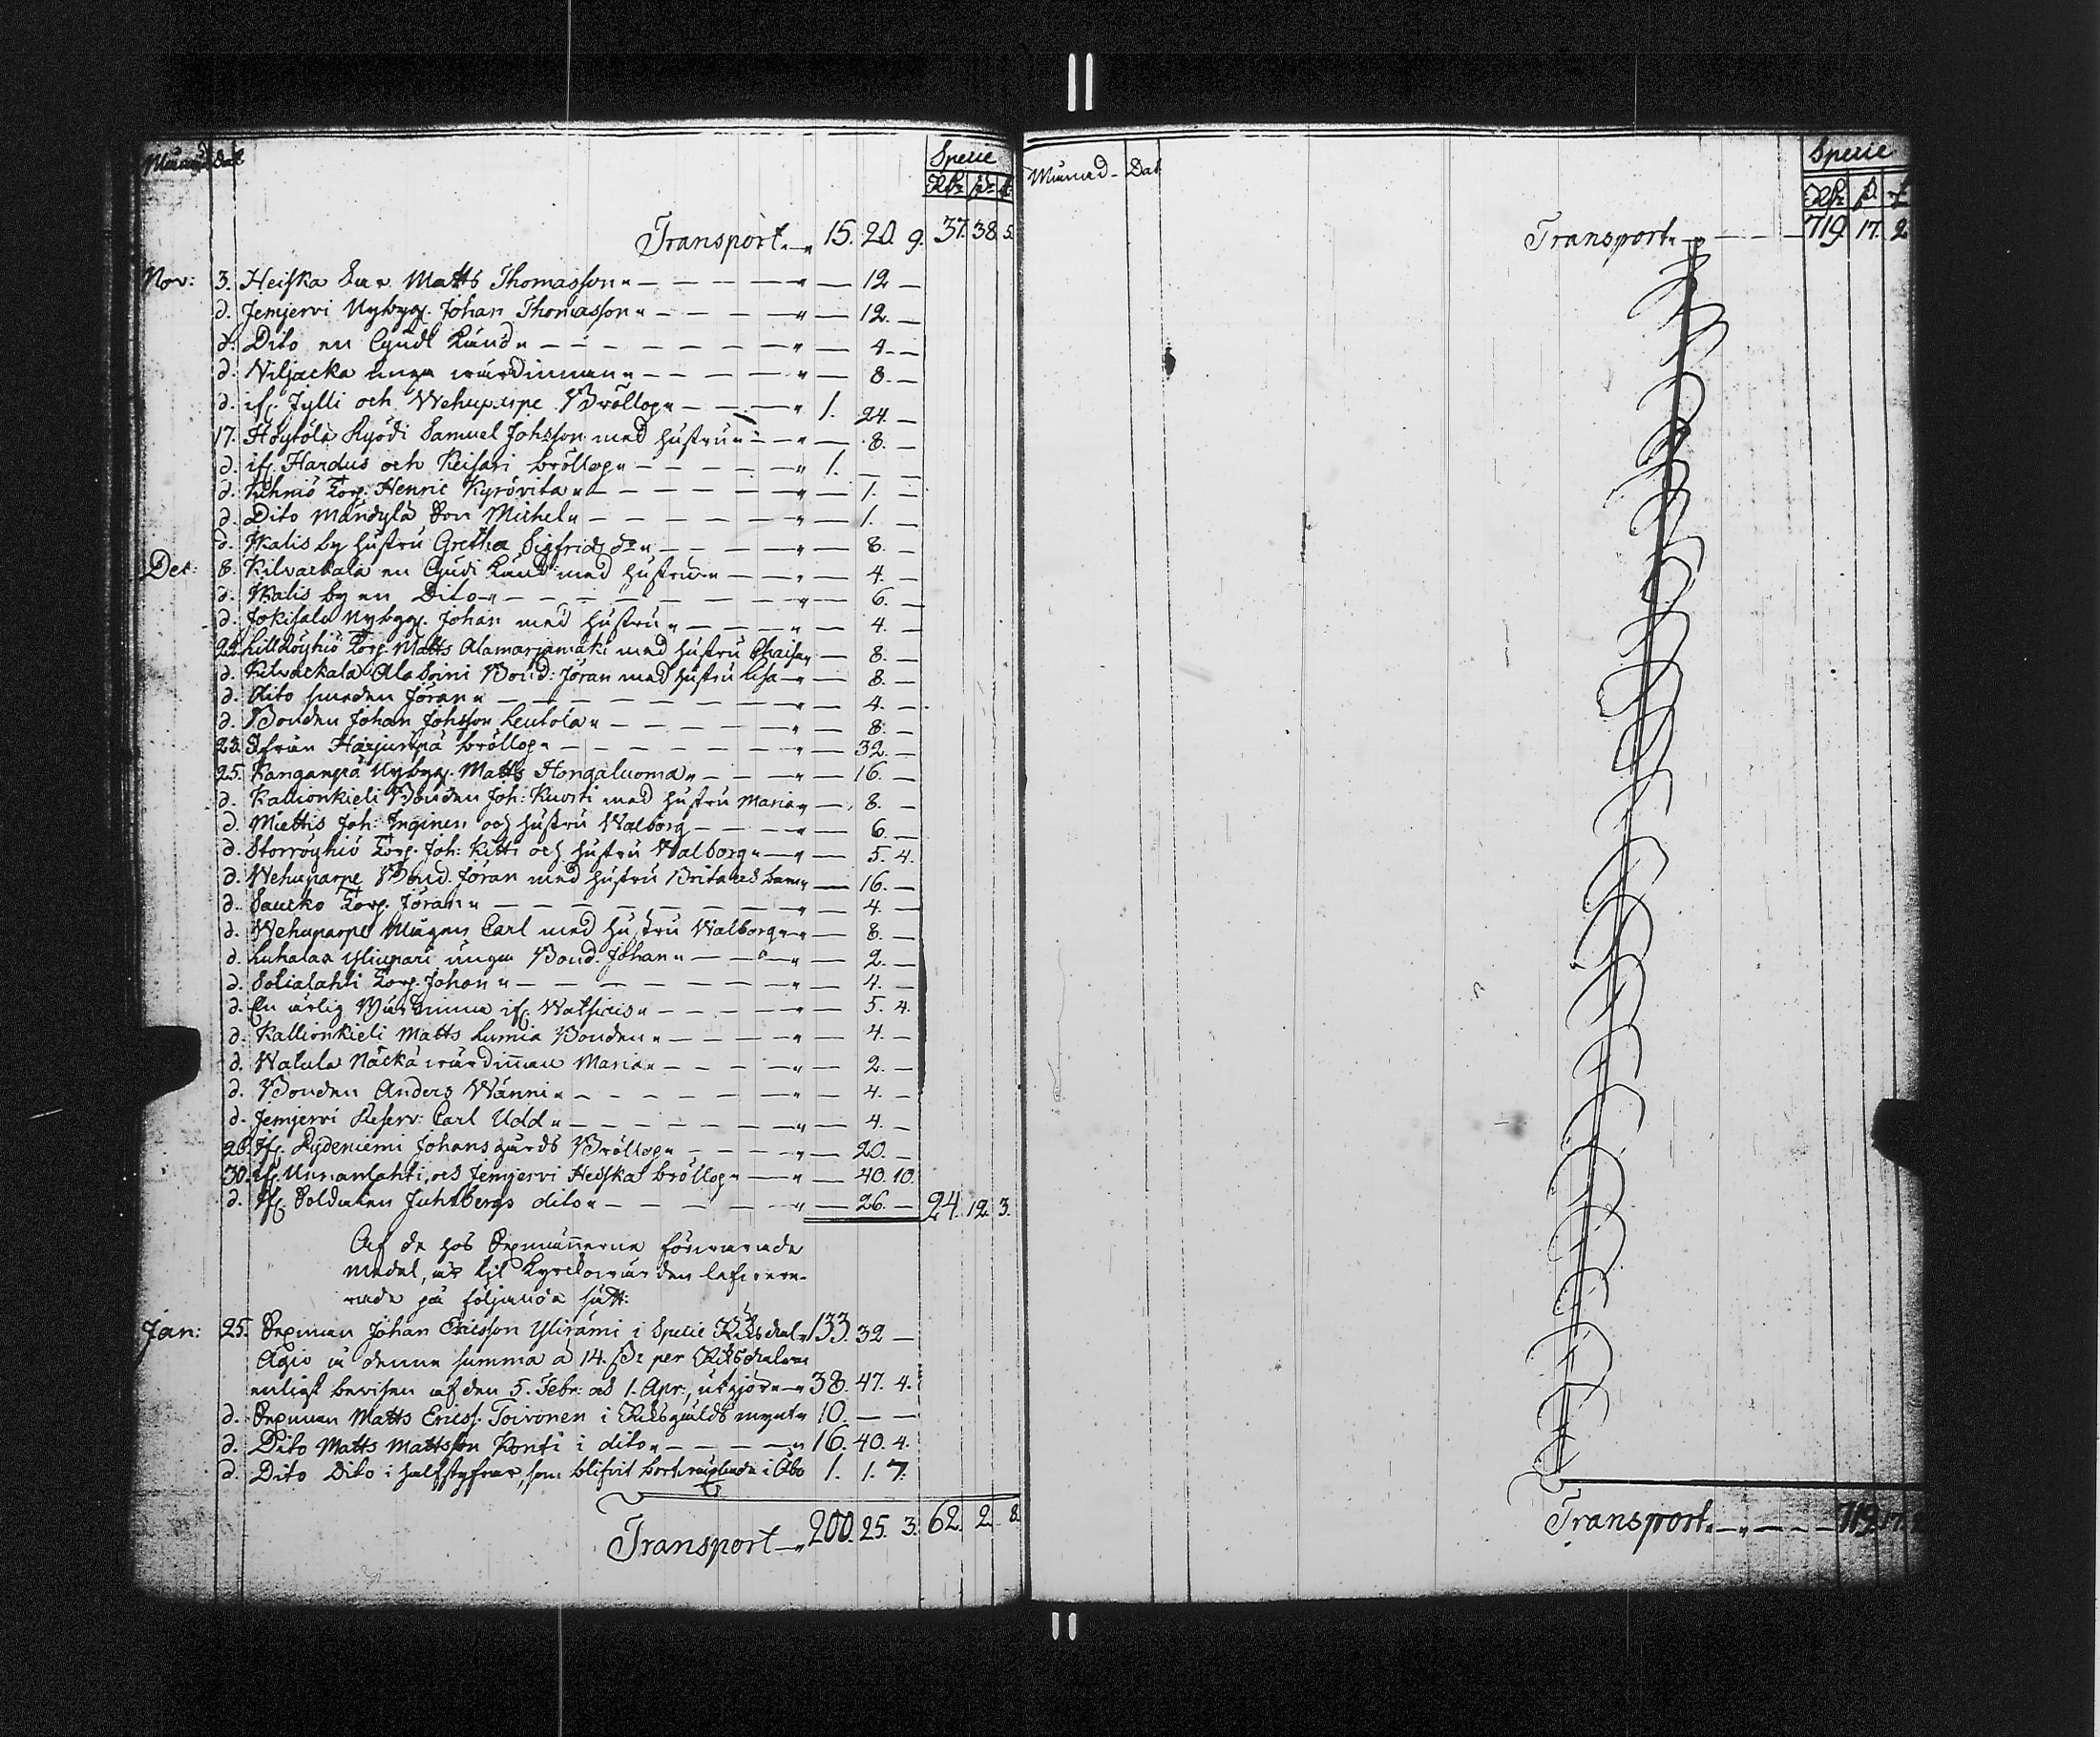 Månad Dat Specie
Rdr ſz ȼ
Transport 15. 20. 9. 37. 38. 5.
Nov: 3. Heiska Matts Thomasson — 12 —
d. Jemjervi Nybygg. Johan Thomasson — 12. —
d. Dito en Gudl. Kund — 4. —
d. Niljacka unga wärdinnan — 8. —
d. if. Jylli och Wehuparpe Bröllop 1. 24. —
17. Höytölä Kyödi Samuel Johsson med hustru — 8. —
d. if. Hardus och Keisari bröllop 1. — —
d. Kihniö Torp. Henric Kyrövita — 1. —
d. Dito Mändylä Son Michel — 1. —
d. Walis by hustru Gretha Sigfridsdr — 8. —
Dec: 8. Kilvackala en Gudi Kund med hustru — 4. —
d. Walis by en Dito — 6. —
d. Jokisalu Nybygg. Johan med hustru — 4. —
22. Lillröyhiö Torp. Matts Alamarjamäki med hustru Chaisa — 8. —
d. Kilvackala Ala Soini Bond: Jöran med hustru Lisa — 8. —
d. Dito smeden Jöran — 4. —
d. Bonden Johan Johsson Leutola — 8. —
23. Ifrån Harjunpä bröllop — 32. —
25. Kanganpä Nybygg. Matts Hongaluoma — 16. —
d. Kallionkieli Bonden Joh: Kuosti med hustru Maria — 8. —
d. Miettis Joh: Inginen och hustru Walborg — 6. —
d. Storröyhiö Torp. Joh: Kitti och hustru Walborg — 5. 4.
d. Wehuparpe Bond. Jöran med hustru Brita och barn — 16. —
d. Saucko Torp. Jöran — 4. —
d. Wehuparpe Mågen Carl med hustru Walborg — 8. —
d. Luhalax Ylinpari unga Bond. Johan — 2. —
d. Solialahti Torp. Johan — 4. —
d. En ärlig Wärdinna if. — 5. 4.
d. Kallionkieli Matts Lumia Bonden — 4. —
d. Watula Näckä wärdinnan Maria — 2. —
d. Bonden Anders Wänni — 4. —
d. Jemjervi Reserv: Carl Udd — 4. —
26. If. Kydeniemi Johans gårds Bröllop — 20. —
30. if. och Jemjervi Heiska bröllop — 40. 10.
d. If. Soldaten Juhlbergs dito — 26. — 24. 12. 3.
Af de hos Sexmännerne förvarade
medel, är til Kyrckowärden leverere-
rade på följande sätt:
Jan: 25. Sexman Johan Ericsson Ylirämi i Specie Riksdal. 133. 32 —
Agio å denna summa a 14. ſz per Riksdalern
enligt bevisen af den 5. Febr: och 1. Apr:, utgjör 38. 47. 4.
d. Sexman Matts Ericss. Toivonen i Riksgälds mynt 10. — —
d. Dito Matts Mattsson Konti i dito 16. 40. 4.
d. Dito Dito i halfstyfrar, som blifvit bortväxlade i Åbo 1. 1. 7.
Transport 200. 25. 3. 62. 2. 8.
Månad Dat Specie
Rdr ſz ȼ
Transport 719. 17. 2
Transport 719. 17.